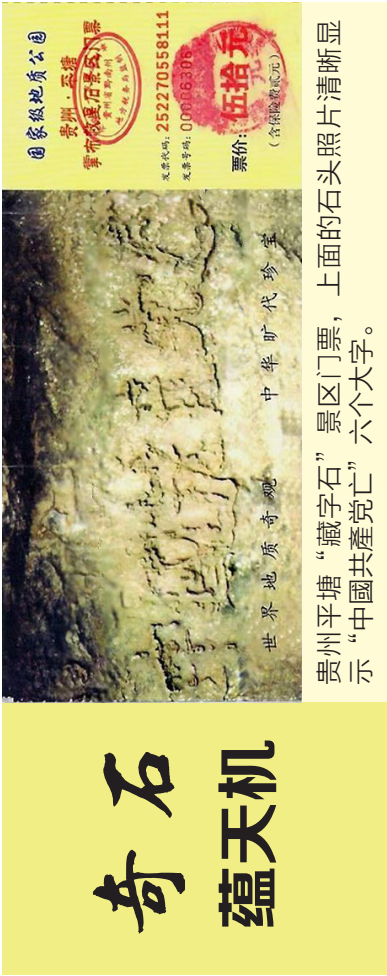 奇石
蕴天机
世界地质奇观
中华旷代珍宝
国家级地质公园
贵州·平塘
掌布藏字石景区门票
发票代码：252270558111
发票号码：00006306
票价：伍拾元
（含保险费贰元）
贵州平塘“藏字石”景区门票，上面的石头照片清晰显
示“中國共產党亡”六个大字。